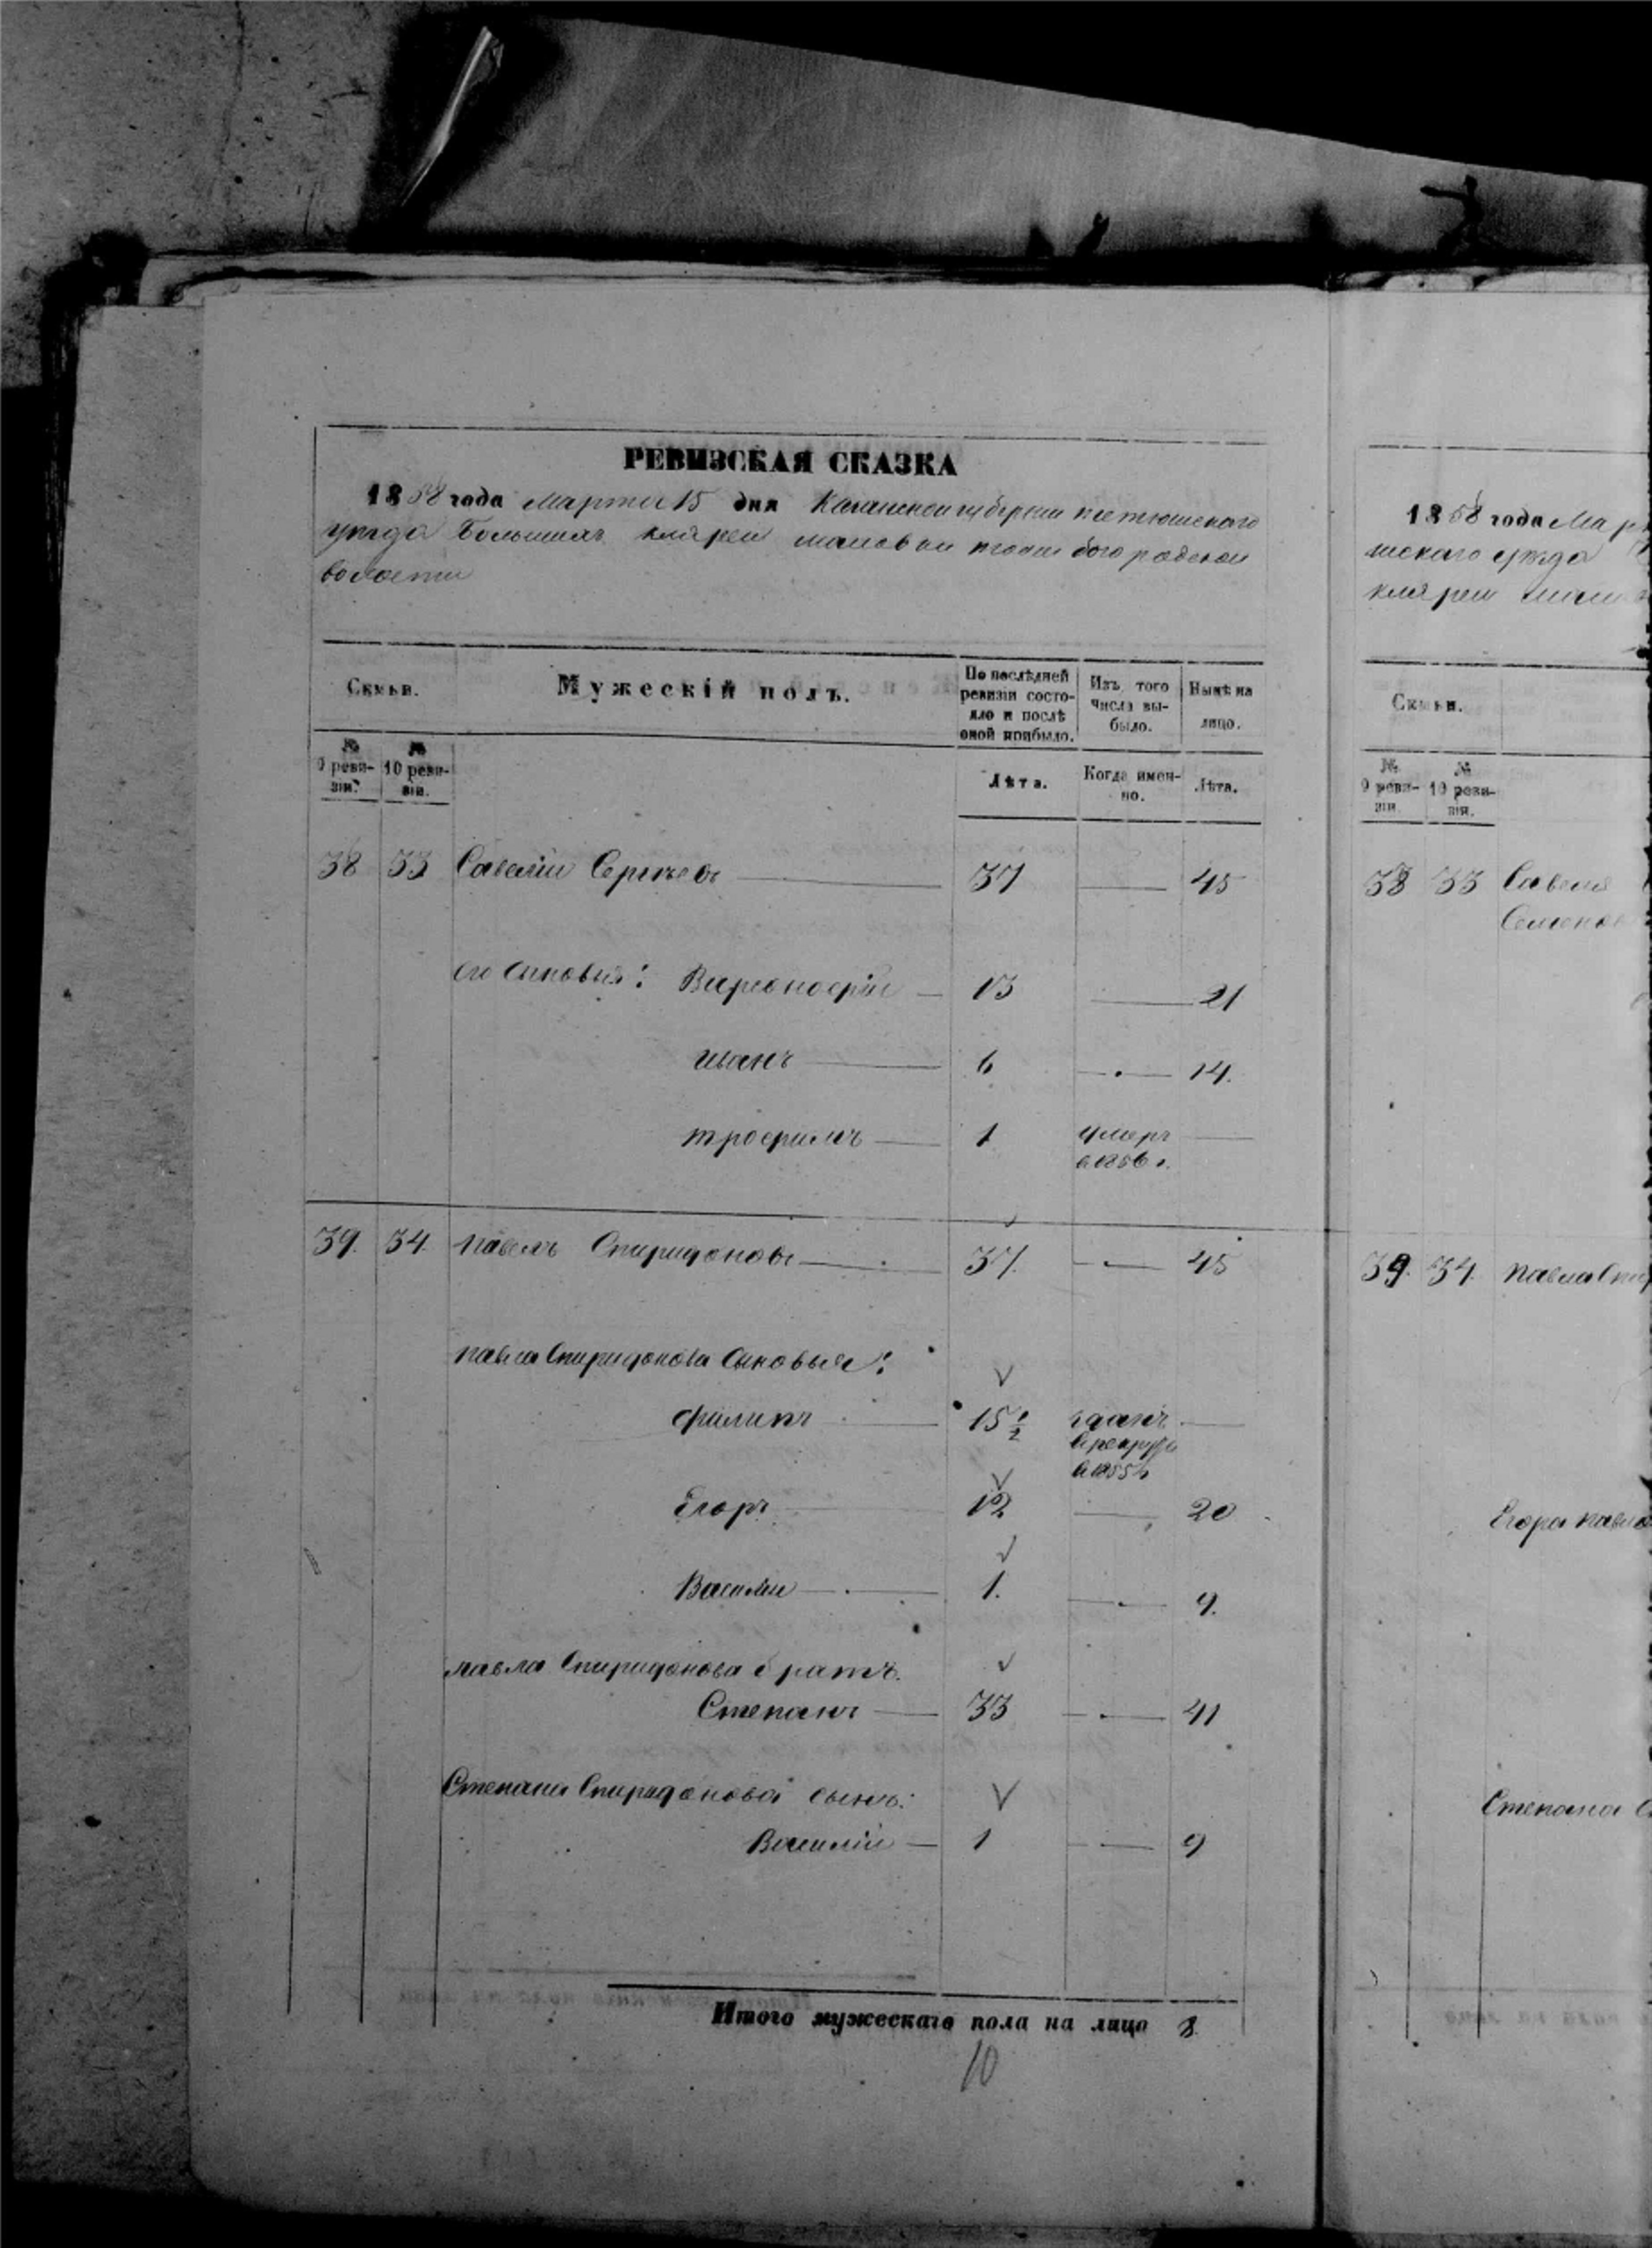 РЕВИЗСКАЯ СКАЗКА
1858 года Марта 15 дня Казанской губернии тетюшскаго
уѣзда Большихъ кляреи богородской
волости
Семьи.
Мужескій полъ.
По послѣдней ревизіи состояло и послѣ оной прибыло.
Изъ того числа выбыло.
Нынѣ на лицо.
№ 9 ревизіи.
№ 10 ревизіи.
Лѣта.
Когда именно.
Лѣта.
38 33 Савелій Сергѣевъ 37 45
его сыновья: 13 21
иванъ 6 14.
трофимъ 1 умеръ
в 1856 г.
39. 34. павелъ Спиридоновъ 37. 45
павла Спиридонова сыновья:
филипъ 15 1/2 зданъ
в рекруты
в 1855 г
Егоръ 12 20
Василій 1. 9.
павла Спиридонова братъ.
Степанъ 33 41
Степана Спиридонова сынъ:
Василій 1 9
Итого мужескаго пола на лицо 8.
10
1858 года Мар
шскаго уѣзда
кляреи
Семьи.
№ 9 ревизіи.
№ 10 ревизіи.
38 33 Савелія
Семенов
39. 34. павла Спир
Егора павло
Степана С